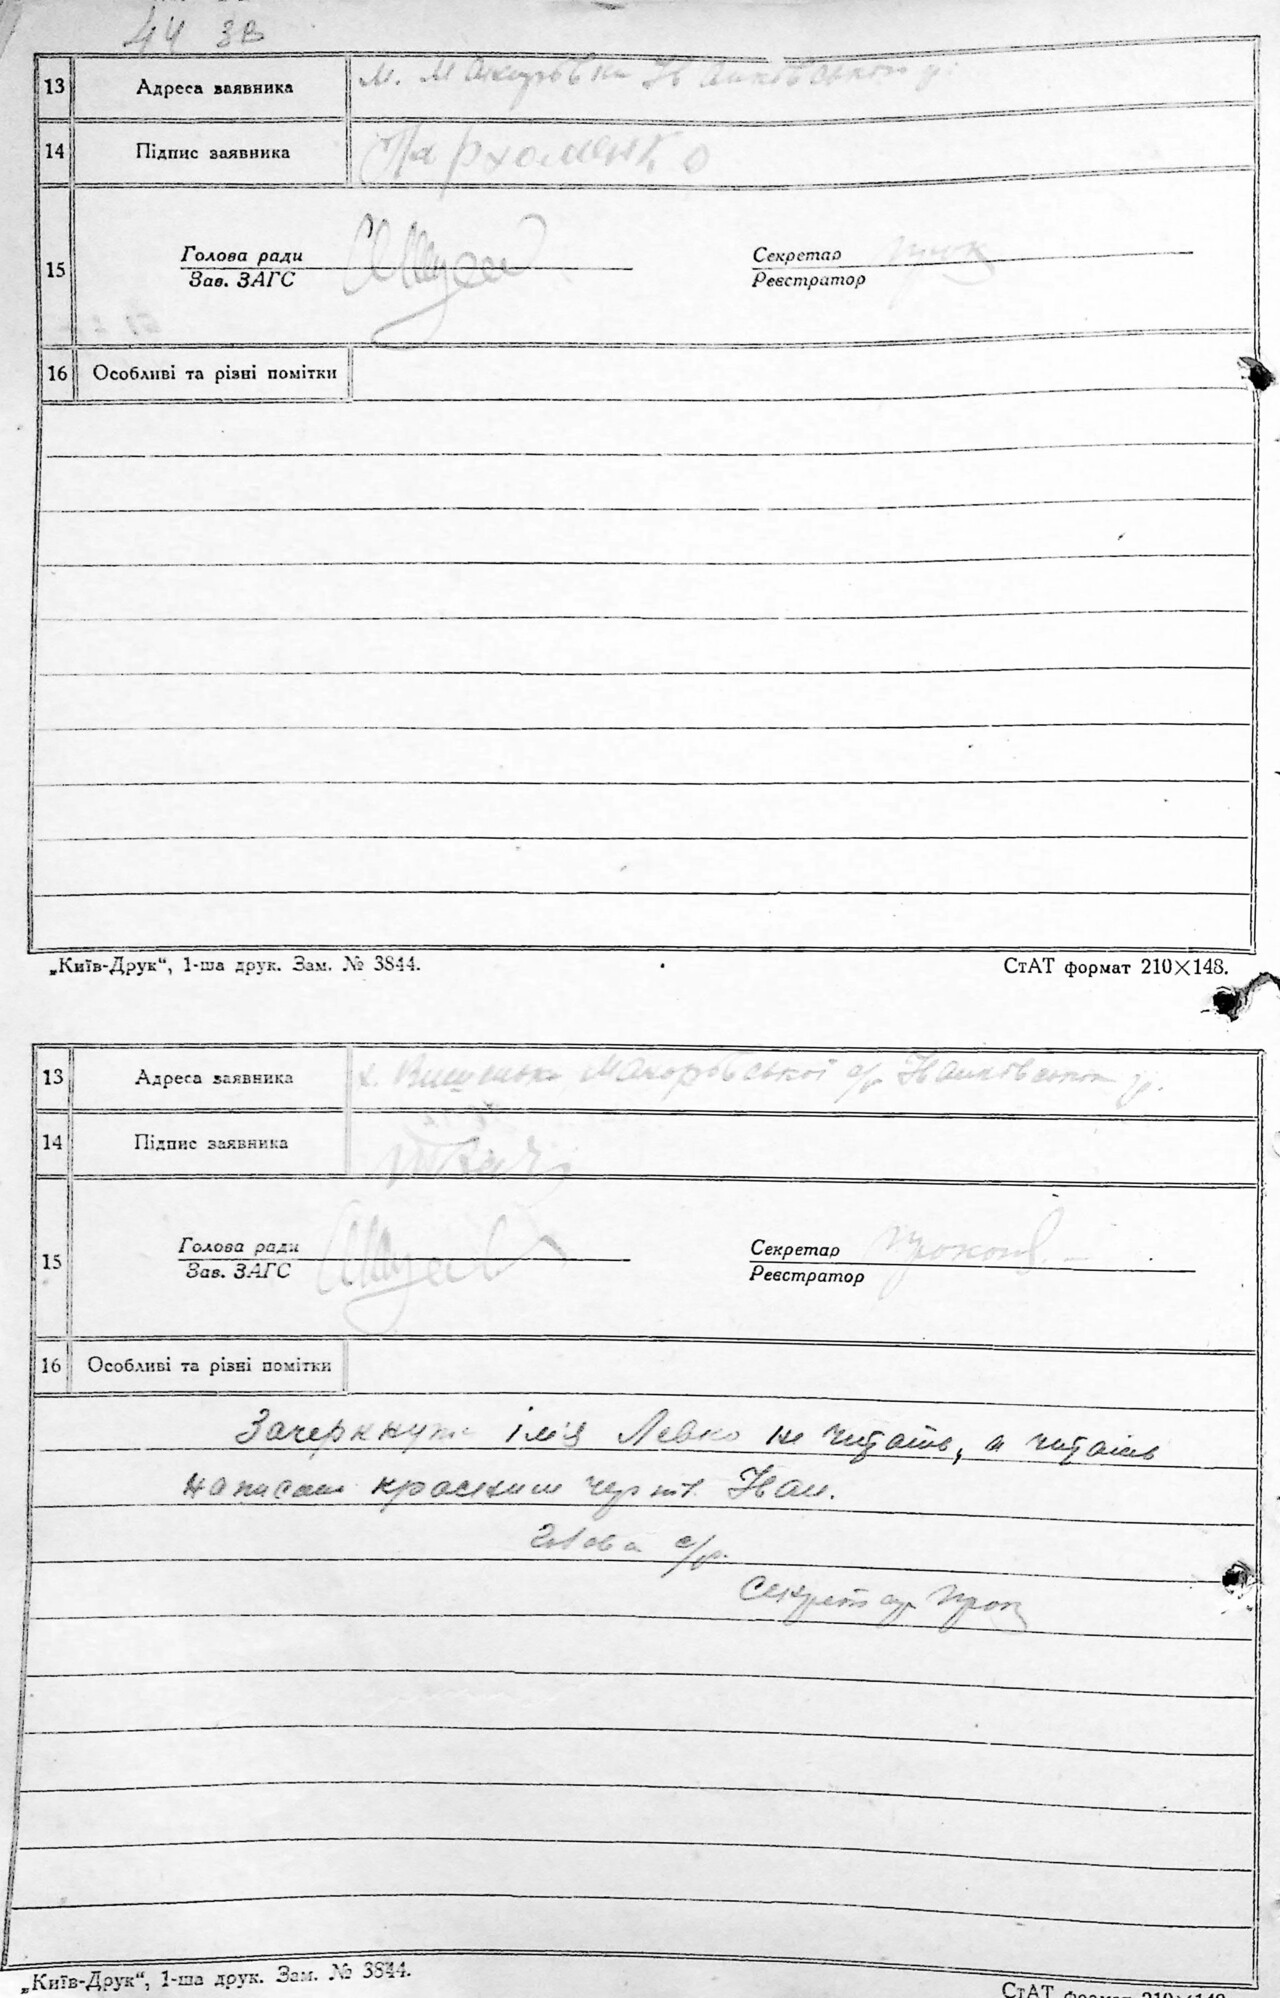 44 зв
13 Адреса заявника м.
14 Підпис заявника Пархоменко
15 Голова ради Секретар
Зав. ЗАГС Реєстратор
16 Особливі та різні помітки
„Київ-Друк“, 1-ша друк. Зам. № 3844. СтАТ формат 210×148.
13 Адреса заявника х. с/р
14 Підпис заявника
15 Голова ради Секретар
Зав. ЗАГС Реєстратор
16 Особливі та різні помітки
Зачеркнуте ім'я Левко не читать, а читать
написане красним Іван.
Голова с/р.
Секретар
„Київ-Друк“, 1-ша друк. Зам. № 3844. СтАТ формат 210×148.